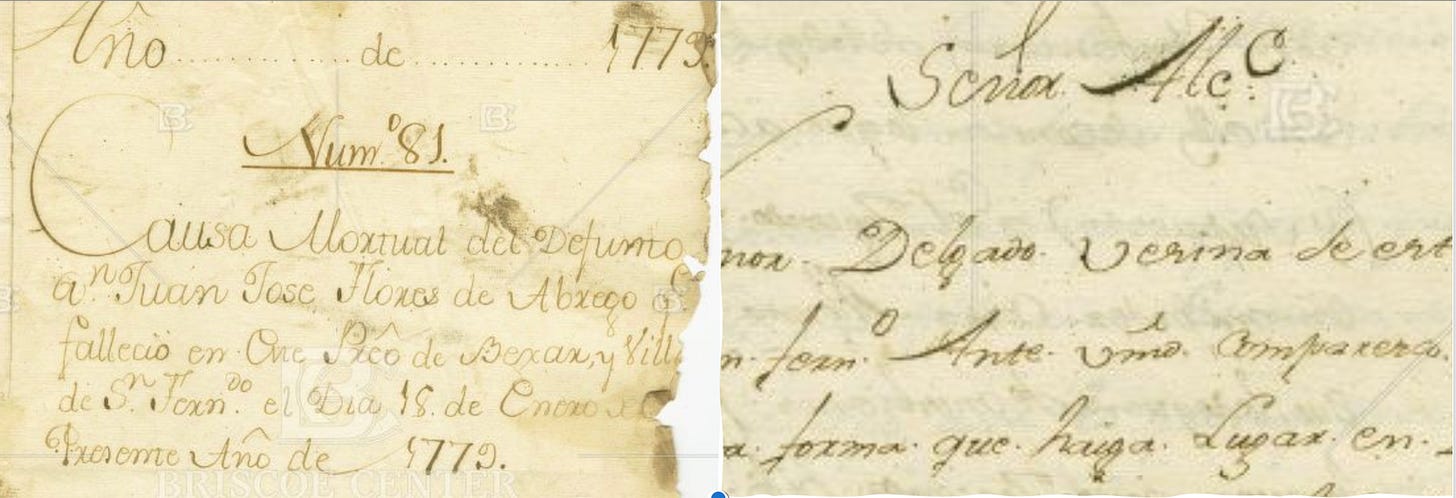 Año de 1779.
Num.º 81.
Causa Mortual del Defunto
Dn. Juan Jose Flores de Abrego q
fallecio en este Preô de Bexar, y Villa
de Sn. Fern.do el Dia 18. de Enero de
Presente Año de 1779.
BRISCOE CENTER
Señor Alc.e
nor. Delgado. Vecina de est
n. fern.o Ante. vmd. Comparezco
a. forma. que. haiga. Lugar. en.